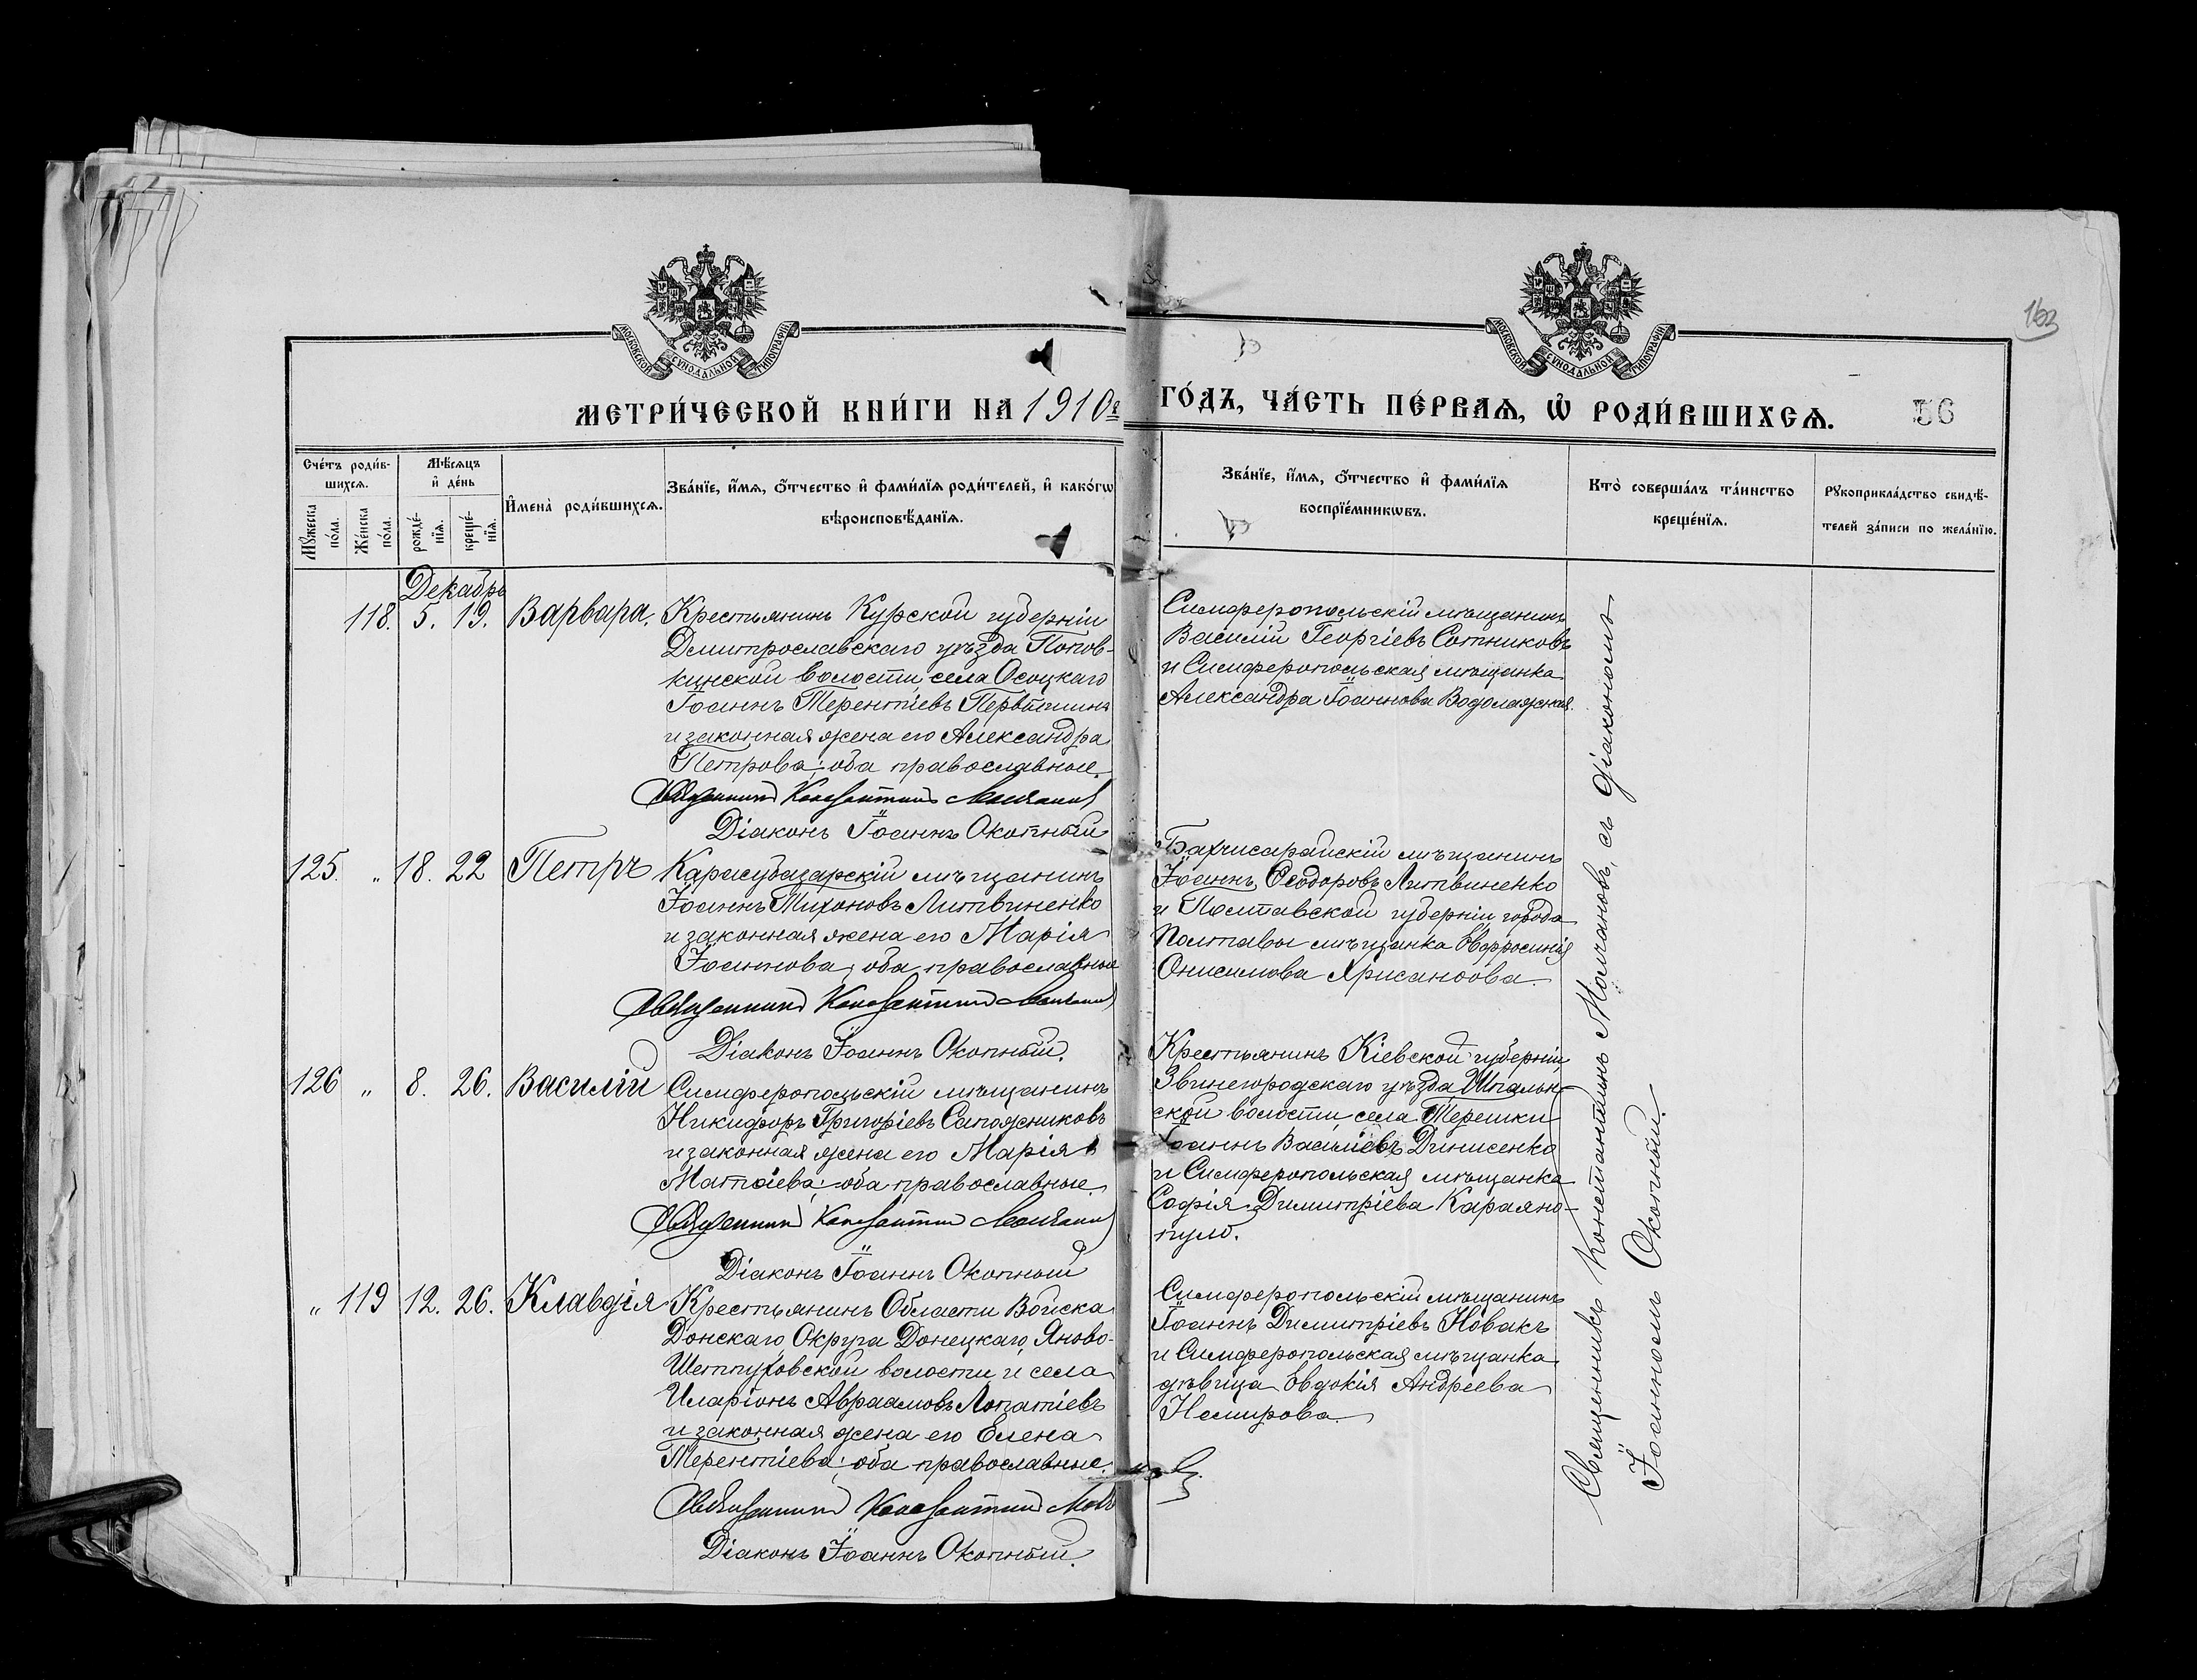 163
МОСКОВСКОЙ СУНОДАЛЬНОЙ ТИПОГРАФІИ
МОСКОВСКОЙ СУНОДАЛЬНОЙ ТИПОГРАФІИ
МЕТРИ́ЧЕСКОЙ КНИ́ГИ НА 1910й
ГО́ДЪ, ЧА́СТЬ ПЕ́РВАѦ, Ѡ҆ РОДИ́ВШИХСѦ.
56
Сче́тъ роди́в-
шихсѧ.
Мꙋ́жеска по́ла.
Же́нска по́ла.
Мѣ́сѧцъ
и҆ де́нь
рожде́-
нїѧ.
креще́-
нїѧ.
И҆мена̀ роди́вшихсѧ.
Зва́нїе, и҆́мѧ, ѻ҆́тчество и҆ фами́лїѧ роди́телей, и҆ како́гѡ
вѣроисповѣ́данїѧ.
Зва́нїе, и҆́мѧ, ѻ҆́тчество и҆ фами́лїѧ
воспрїе́мникѡвъ.
Кто̀ соверша́лъ та́инство
креще́нїѧ.
Рꙋкоприкла́дство свидѣ́-
телей за́писи по жела́нїю.
Декабрь
118. 5. 19. Варвара.
Крестьянинъ Курской губерніи
Дмитрославскаго уѣзда Попов-
кинской волости села Осоцкаго
Іоаннъ Терентіевъ Первышинъ
и законная жена его Александра
Петрова; оба православные.
Священникъ Константинъ Молчановъ
Діаконъ Іоаннъ Окопный
Симферопольскій мѣщанинъ
Василій Георгіевъ Сотниковъ
и Симферопольская мѣщанка
Александра Іоаннова Водолажская.
125. " 18. 22 Петръ
Карасубазарскій мѣщанинъ
Іоаннъ Тихоновъ Литвиненко
и законная жена его Марія
Іоаннова; оба православные
Священникъ Константинъ Молчановъ
Діаконъ Іоаннъ Окопный.
Бахчисарайскій мѣщанинъ
Іоаннъ Ѳеодоровъ Литвиненко
и Полтавской губерніи города
Полтавы мѣщанка Евфросинія
Онисимова Хрисанѳова.
126 " 8. 26. Василій
Симферопольскій мѣщанинъ
Никифоръ Григоріевъ Сапожниковъ
и законная жена его Марія
Матѳіева; оба православные.
Священникъ Константинъ Молчановъ
Діаконъ Іоаннъ Окопный
Крестьянинъ Кіевской губерніи,
Звинегородскаго уѣзда Шполян-
ской волости села Терешки
Іоаннъ Василіевъ Динисенко
и Симферопольская мѣщанка
Софія Димитріева Караяно-
пуло.
" 119 12. 26. Клавдія
Крестьянинъ Области Войска
Донскаго Округа Донецкаго, Яново-
волости и села
Иларіонъ Авраамовъ Лопатіевъ
и законная жена его Елена
Терентіева; оба православные.
Священникъ Константинъ Молч
Діаконъ Іоаннъ Окопный.
Симферопольскій мѣщанинъ
Іоаннъ Димитріевъ Новакъ
и Симферопольская мѣщанка
дѣвица Евдокія Андреева
Немирова.
Священникъ Константинъ Молчановъ, съ діакономъ
Іоанномъ Окопный.